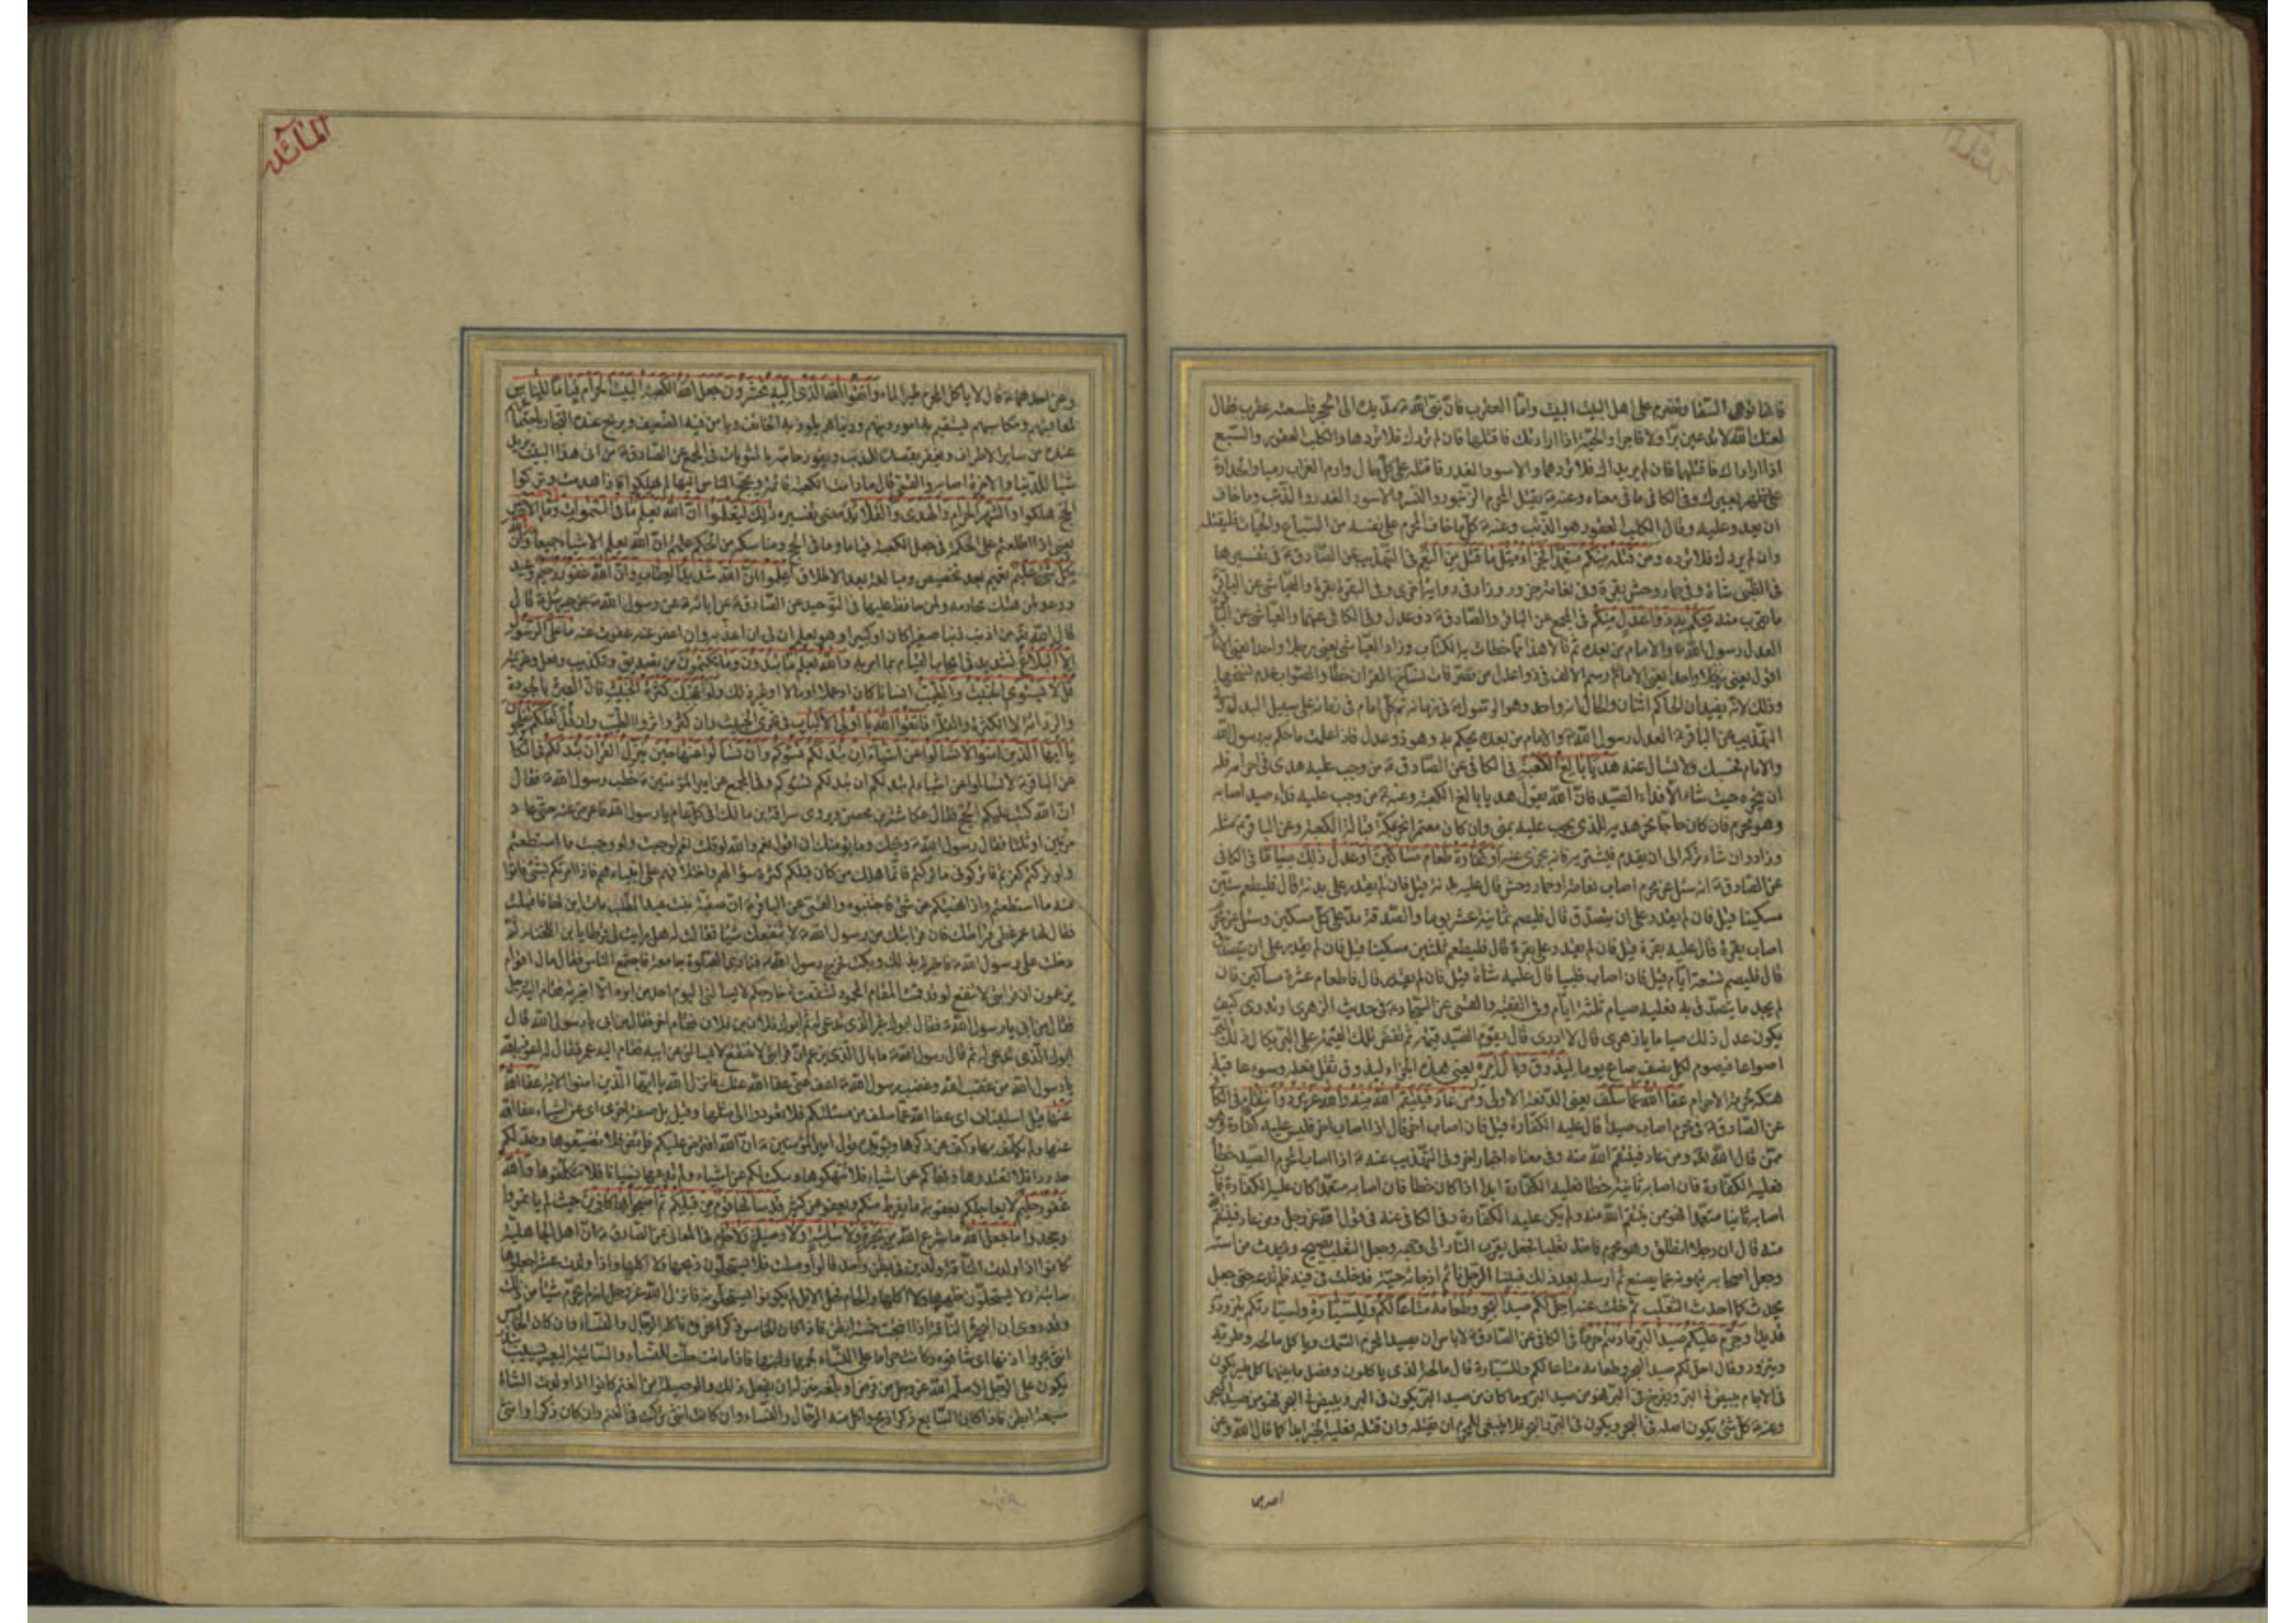 فانها توهى السقا وتضرم على اهل البيت البيت وامّا العقرب فانّ نبىّ الله مدّ يده الى الحجر فلسعته عقرب فقال
لعنك الله لا تدعين برّا ولا فاجرا والحيّة اذا ارادتك فاقتلها فان لم تردك فلا تردها والكلب العقور والسبع
اذا ارادك فاقتلهما فان لم يريداك فلا تردهما والاسود الغدر فاقتله على كلّ حال وارم الغراب رميا والحدأة
على ظهر بعيرك وفى الكافى ما فى معناه وعنه يقتل المحرم الزنبور والنسر والاسود الغدر والذئب وما خاف
ان يعدو عليه وقال الكلب العقور هو الذئب وعنه كلّ ما خاف المحرم على نفسه من السباع والحيّات فليقتله
وان لم يردك فلا ترده ومن قتله منكم متعمّدا فجزاء مثل ما قتل من النعم فى التهذيب عن الصادق فى تفسيرها
فى الظبى شاة وفى حمار وحش بقرة وفى نعامة جزور وزاد فى رواية اخرى وفى البقرة بقرة والعياشى عن الباقر
يحكم به ذوا عدل منكم فى المجمع عن الباقر والصادق ذو عدل وفى الكافى عنهما والعياشى عن الباقر
العدل رسول الله والامام من بعده ثم قالا هذا ممّا اخطات به الكتّاب وزاد العياشى يعنى رجلا واحدا يعنى الامام
اقول يعنى
وذلك لانّه يفيد ان الحاكم اثنان والحال انه واحد وهو الرسول فى زمانه ثم كل امام فى زمانه على سبيل البدل وفى
التهذيب عن الباقر العدل رسول الله والامام من بعده يحكم به وهو ذو عدل فاذا علمت ما حكم به رسول الله
والامام فحسبك ولا تسال عنه هديا بالغ الكعبة فى الكافى عن الصادق من وجب عليه هدى فى احرامه فله
ان ينحره حيث شاء الّا فداء الصيد فانّ الله يقول هديا بالغ الكعبة وعنه من وجب عليه فداء صيد اصابه
وهو محرم فان كان حاجا نحر هديه الذى يجب عليه بمنى وان كان معتمرا نحر بمكة قبالة الكعبة وعن الباقر مثله
وزاد وان شاء تركه الى ان يقدم فيشتريه فانه يجزى عنه او كفارة طعام مساكين او عدل ذلك صياما فى الكافى
عن الصادق انه سئل عن محرم اصاب نعامة او حمار وحش قال عليه بدنة قيل فان لم يقدر على بدنة قال فليطعم ستّين
مسكينا قيل فان لم يقدر على ان يتصدّق قال فليصم ثمانية عشر يوما والصدقة مدّ على كلّ مسكين وسئل عن محرم
اصاب بقرة قال عليه بقرة قيل فان لم يقدر على بقرة قال فليطعم ثلثين مسكينا قيل فان لم يقدر على ان يتصدق
قال فليصم تسعة ايّام قيل فان اصاب ظبيا قال عليه شاة قيل فان لم يقدر قال فاطعام عشرة مساكين فان
لم يجد ما يتصدّق به فعليه صيام ثلثة ايّام وفى الفقيه والقمى عن السجاد فى حديث الزهرى او تدرى كيف
يكون عدل ذلك صياما يا زهرى قال لا ادرى قال يقوّم الصيد قيمة ثم تفض تلك القيمة على البرّ ثم يكال ذلك البرّ
اصواعا فيصوم لكل نصف صاع يوما ليذوق وبال امره يعنى هذا الجزاء ليذوق ثقل فعله وسوء عاقبة
هتكه حرمة الاحرام عفا الله عمّا سلف يعنى الدفعة الاولى ومن عاد فينتقم الله منه والله عزيز ذو انتقام فى الكافى
عن الصادق فى محرم اصاب صيدا قال عليه الكفارة قيل فان اصاب اخر قال اذا اصاب اخر فليس عليه كفارة وهو
ممّن قال الله ومن عاد فينتقم الله منه وفى معناه اخبار اخر وفى التهذيب عنه اذا اصاب المحرم الصيد خطأ
فعليه الكفارة فان اصابه ثانية خطا فعليه الكفارة ابدا اذا كان خطا فان اصابه متعمدا كان عليه الكفارة فان
اصابه ثانيا متعمدا فهو ممن ينتقم الله منه ولم يكن عليه الكفارة وفى الكافى عنه فى قول الله عز وجل ومن عاد فينتقم الله
منه قال ان رجلا انطلق وهو محرم فاخذ ثعلبا فجعل يقرب النار الى وجهه وجعل الثعلب يصيح ويحدث من استه
وجعل اصحابه ينهونه عما يصنع ثم ارسله بعد ذلك فبينا الرجل نائم اذ جاءته حيّة فدخلت فى فيه فلم تدعه حتى جعل
يحدث كما احدث الثعلب ثم خلت عنه احل لكم صيد البحر وطعامه متاعا لكم وللسيارة ولسيارتكم يتزودونه
قديدا وحرّم عليكم صيد البرّ ما دمتم حرما فى الكافى عن الصادق لا باس ان يصيد المحرم السمك وياكل مالحه وطريّه
ويتزود وقال احل لكم صيد البحر وطعامه متاعا لكم وللسيارة قال مالحه الذى ياكلون وفصل ما بينهما كل طير يكون
فى الاجام يبيض فى البر ويفرخ فى البر فهو من صيد البر وما كان من صيد البر يكون فى البر ويبيض فى البحر فهو من صيد البحر
وعنه كل شئ يكون اصله فى البحر ويكون فى البر والبحر فلا ينبغى للمحرم ان يقتله وان قتله فعليه الجزاء كما قال الله وعن
احدهما
المائدة
وعن احدهما قال لا ياكل المحرم طير الماء واتقوا الله الذى اليه تحشرون جعل الله الكعبة البيت الحرام قياما للناس
لمعايشهم ومكاسبهم يستقيم به امور دينهم ودنياهم يلوذ به الخائف ويامن فيه الضعيف ويربح عنده التجار باجتماعهم
عنده من ساير الاطراف ويغفر بقصده للمذنب ويفوز حاجّه بالمثوبات فى المجمع عن الصادق من اتى هذا البيت يريد
شيئا للدنيا والاخرة اصابه والقمى قال ما دامت الكعبة قائمة ويحج الناس اليها لم يهلكوا فاذا هدمت وتركوا
الحج هلكوا والشهر الحرام والهدى والقلائد مضى تفسيره ذلك لتعلموا انّ الله يعلم ما فى السموات وما فى الارض
يعنى اذا اطلعتم على الحكمة فى جعل الكعبة قياما وما فى الحج ومناسكه من الحكم علمتم انّ الله يعلم الاشياء جميعا وان الله
بكل شئ عليم تعميم بعد تخصيص ومبالغة بعد الاطلاق اعلموا انّ الله شديد العقاب وان الله غفور رحيم وعيد
ووعد لمن هتك محارمه ولمن حافظ عليها فى التوحيد عن الصادق عن ابائه عن رسول الله عن جبرئيل قال
قال الله من اذنب ذنبا صغيرا كان او كبيرا وهو يعلم ان لى ان اعذبه وان اعفو عنه عفوت عنه ما على الرسول
الا البلاغ تشديد فى ايجاب القيام بما امر به والله يعلم ما تبدون وما تكتمون من تصديق وتكذيب وفعل وعزيمة
قل لا يستوى الخبيث والطيب انسانا كان او عملا او مالا او غير ذلك ولو اعجبك كثرة الخبيث فان العبرة بالجودة
والرداءة لا الكثرة والقلة فاتقوا الله يا اولى الالباب فى تحرى الخبيث وان كثر واثروا الطيب وان قل لعلكم تفلحون
يا ايها الذين امنوا لا تسالوا عن اشياء ان تبد لكم تسؤكم وان تسالوا عنها حين ينزل القران تبد لكم فى الكافى
عن الباقر لا تسالوا عن اشياء لم تبد لكم ان تبد لكم تسؤكم وفى المجمع عن امير المؤمنين خطب رسول الله فقال
انّ الله كتب عليكم الحج فقال عكاشة بن محصن ويروى سراقة بن مالك افى كل عام يا رسول الله فاعرض عنه حتى عاد
مرتين او ثلثا فقال رسول الله ويحك وما يؤمنك ان اقول نعم والله لو قلت نعم لوجبت ولو وجبت ما استطعتم
ولو تركتم كفرتم فاتركونى ما تركتكم فانّما هلك من كان قبلكم كثرة سؤالهم واختلافهم على انبيائهم فاذا امرتكم بشئ فاتوا
منه ما استطعتم واذا نهيتكم عن شئ فاجتنبوه والقمى عن الباقر ان صفيّة بنت عبد المطلب مات ابن لها فاقبلت
فقال لها عمر غطى قرطك فان قرابتك من رسول الله لا تنفعك شيئا فقالت له هل رايت لى قرطا يا بن اللخناء ثم
دخلت على رسول الله فاخبرته بذلك وبكت فخرج رسول الله فنادى الصلوة جامعة فاجتمع الناس فقال ما بال اقوام
يزعمون ان قرابتى لا تنفع لو قد قمت المقام المحمود لشفعت لا يسالنى اليوم احد من ابوه الا اخبرته فقام اليه رجل
فقال من ابى يا رسول الله فقال ابوك غير الذى تدعى له ابوك فلان بن فلان فقام اخر فقال من ابى يا رسول الله قال
ابوك الذى تدعى له ثم قال رسول الله ما بال الذى يزعم انّ قرابتى لا تنفع لا يسالنى عن ابيه فقام اليه عمر فقال له اعوذ بالله
يا رسول الله من غضب الله وغضب رسول الله اعف عنى عفا الله عنك فانزل الله يا ايها الذين امنوا الاية عفا الله
عنها قيل استيناف اى عفا الله عما سلف من مسئلتكم فلا تعودوا الى مثلها وقيل بل صفة اخرى اى عن اشياء عفا الله
عنها ولم يكلف بها وكف عن ذكرها ويؤيده قول امير المؤمنين انّ الله افترض عليكم فرائض فلا تضيعوها وحد لكم
حدودا فلا تعتدوها ونهاكم عن اشياء فلا تنتهكوها وسكت لكم عن اشياء ولم يدعها نسيانا فلا تتكلفوها والله
غفور حليم لا يعاجلكم بعقوبة ما يفرط منكم ويعفو عن كثير قد سالها قوم من قبلكم ثم اصبحوا بها كافرين حيث لم ياتمروا
وجحدوا ما جعل الله ما شرع الله من بحيرة ولا سائبة ولا وصيلة ولا حام فى المعانى عن الصادق انّ اهل الجاهلية
كانوا اذا ولدت الناقة ولدين فى بطن واحد قالوا وصلت فلا يستحلّون ذبحها ولا اكلها واذا ولدت عشرا جعلوها
سائبة ولا يستحلّون ظهرها ولا اكلها والحام فحل الابل لم يكونوا يستحلونه فانزل الله عز وجل انه لم يحرم شيئا من ذلك
وقد روى ان البحيرة الناقة اذا انتجت خمسة ابطن فاذا كان الخامس ذكرا نحروه فاكله الرجال والنساء وان كان الخامس
انثى بحروا اذنها اى شقوه وكانت حراما على النساء لحمها ولبنها فاذا ماتت حلّت للنساء والسائبة البعير يسيب بنذر
يكون على الرجل ان سلمه الله عز وجل من مرض او بلغه منزله ان يفعل ذلك والوصيلة من الغنم كانوا اذا ولدت الشاة
سبعة ابطن فاذا كان السابع ذكرا ذبح واكل منه الرجال والنساء وان كانت انثى تركت فى الغنم وان كان ذكرا وانثى